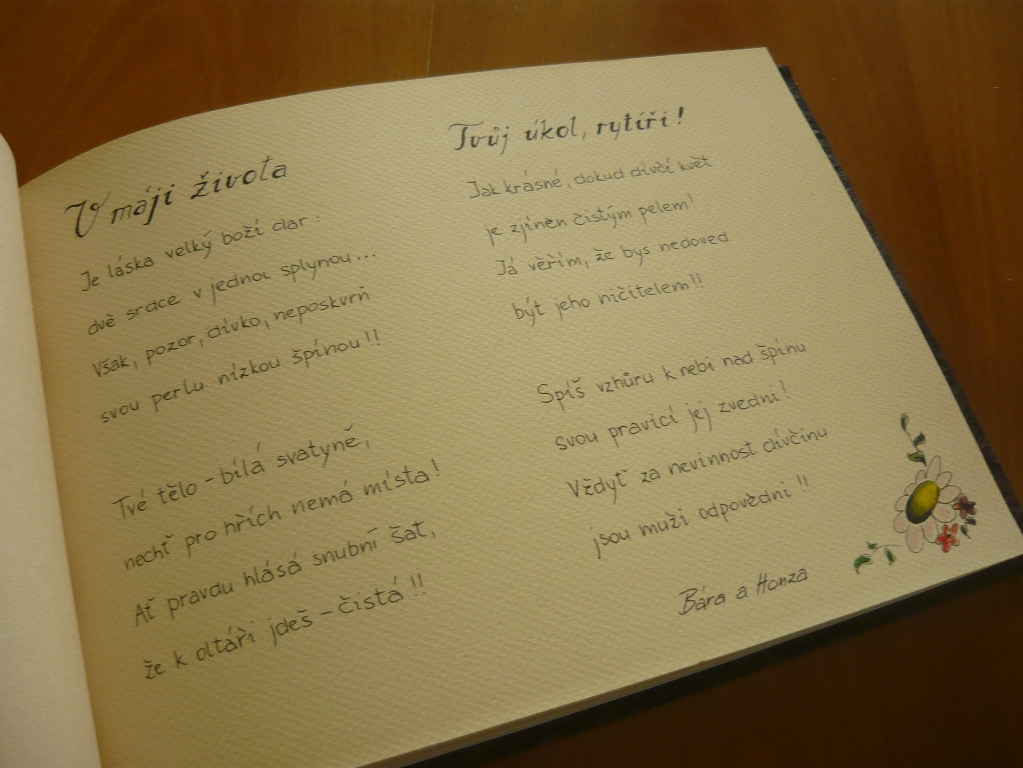 V máji života
Je láska velký boží dar:
dvě srdce v jednou splynou...
Však, pozor, dívko, neposkvrň
svou perlu nízkou špínou!!
Tvé tělo - bílá svatyně,
nechť pro hřích nemá místa!
Ať pravdu hlásá snubní šat,
že k oltáři jdeš - čistá!!
Tvůj úkol, rytíři!
Jak krásné, dokud dívčí květ
je zjíněn čistým pelem!
Já věřím, že bys nedoved
být jeho ničitelem!!
Spíš vzhůru k nebi nad špínu
svou pravicí jej zvedni!
Vždyť za nevinnost dívčinu
jsou muži odpovědni!!
Bára a Honza